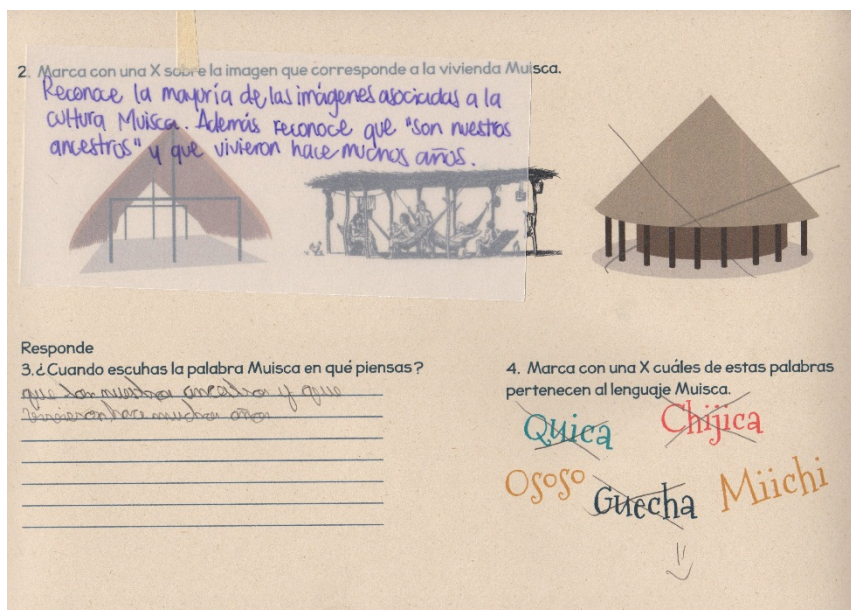 2. Marca con una X sobre la imagen que corresponde a la vivienda Muisca.
Reconoce la mayoría de las imágenes asociadas a la
cultura Muisca. Además reconoce que "son nuestros
ancestros" y que vivieron hace muchos años.
Responde
3.¿Cuando escuhas la palabra Muisca en qué piensas?
que son nuestros ancestros y que
vivieron hace muchos años
4. Marca con una X cuáles de estas palabras
pertenecen al lenguaje Muisca.
Quica
Chijica
Ososo
Guecha
Miichi